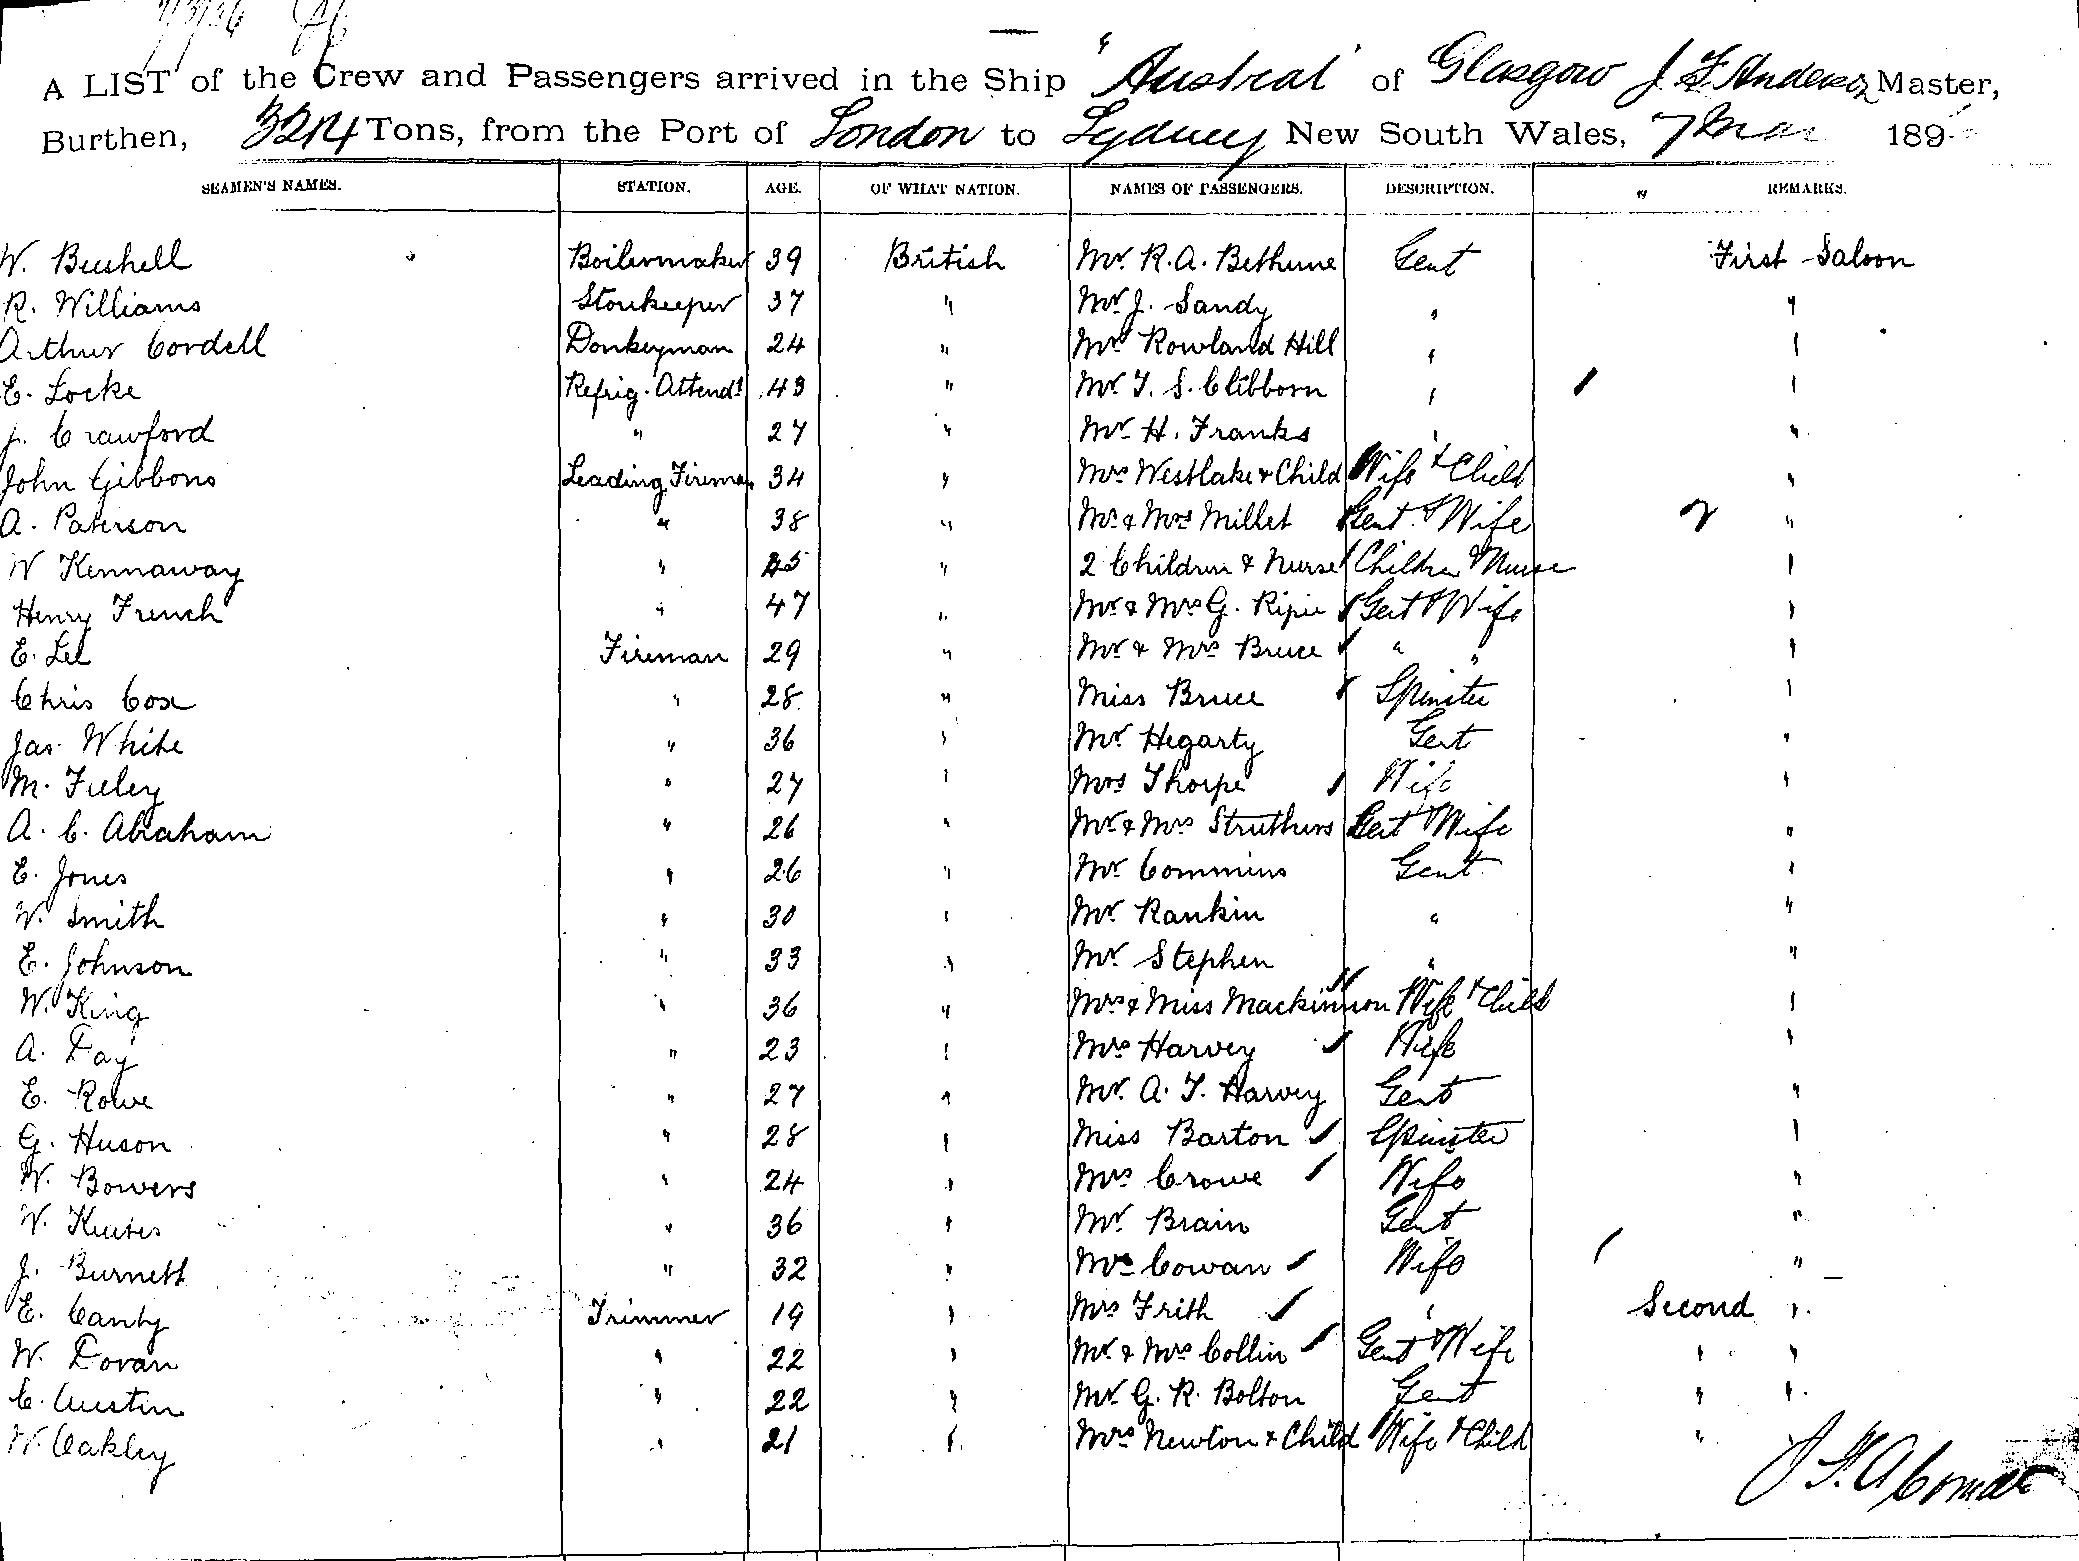 A LIST of the Crew and Passengers arrived in the Ship "Austral" of Glasgow J F Anderson Master,
Burthen, 3214 Tons, from the Port of London to Sydney New South Wales, 7 Mar 189
SEAMEN'S NAMES. STATION. AGE. OF WHAT NATION. NAMES OF PASSENGERS. DESCRIPTION. " REMARKS.
W. Bushell Boilermaker 39 British Mr. R. A. Bethune Gent First Saloon
R. Williams Storekeeper 37 " Mr J. Sandy " "
Arthur Cordell Donkeyman 24 " Mr Rowland Hill " "
E. Locke Refrig. Attendt 43 " Mr T. S. Clibborn " "
J. Crawford " 27 " Mr H. Franks " "
John Gibbons Leading Fireman 34 " Mrs Westlake & Child Wife & Child "
A. Paterson " 38 " Mr & Mrs Millet Gent & Wife 2 "
W Kennaway " 45 " 2 Children & Nurse Children & Nurse "
Henry French " 47 " Mr & Mrs G. Ripie Gent & Wife "
E. Lee Fireman 29 " Mr & Mrs Bruce " " "
Chris Cox " 28 " Miss Bruce Spinster "
Jas. White " 36 " Mr Hegarty Gent "
M. Fieley " 27 " Mrs Thorpe Wife "
A. C. Abraham " 26 " Mr & Mrs Struthers Gent & Wife "
E. Jones " 26 " Mr Commins Gent "
W. Smith " 30 " Mr Rankin " "
E. Johnson " 33 " Mr Stephen " "
W. King " 36 " Mrs & Miss Mackinnon Wife & Child "
A. Day " 23 " Mrs Harvey Wife "
E. Rowe " 27 " Mr. A. T. Harvey Gent "
G. Huson " 28 " Miss Barton Spinster "
W. Bowers " 24 " Mrs Crowe Wife "
W. Keates " 36 " Mr Brain Gent "
J. Burnett " 32 " Mrs Cowan Wife "
E. Canty Trimmer 19 " Mrs Frith " Second "
W. Dovan " 22 " Mr & Mrs Collin Gent & Wife " "
C. Austin " 22 " Mr G. R. Bolton Gent " "
W. Oakley " 21 " Mrs Newton & Child Wife & Child "